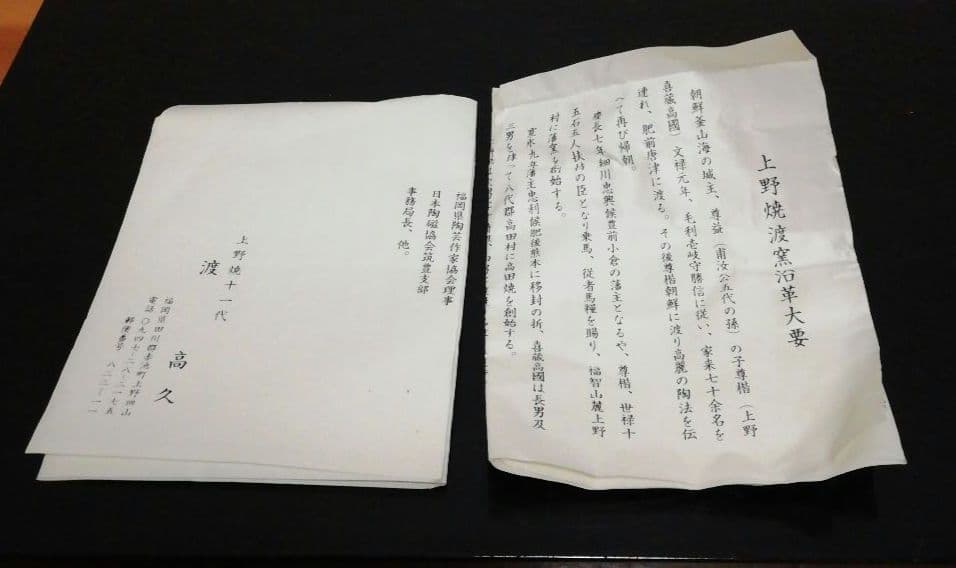 上野焼渡窯沿革大要
朝鮮釜山海の城主、尊益（甫汝公五代の孫）の子尊楷（上野
喜蔵高國）文禄元年、毛利壱岐守勝信に従い、家来七十余名を
連れ、肥前唐津に渡る。その後尊楷朝鮮に渡り高麗の陶法を伝
へて再び帰朝。
慶長七年細川忠興候豊前小倉の藩主となるや、尊楷、世禄十
五石五人扶持の臣となり乗馬、従者馬糧を賜り、福智山麓上野
村に藩窯を創始する。
寛永九年藩主忠利候肥後熊本に移封の折、喜蔵高國は長男及
三男を伴って八代郡高田村に高田焼を創始する。
福岡県陶芸作家協会理事
日本陶磁協会筑豊支部
事務局長、他。
上野焼十一代
渡 高久
福岡県田川郡赤池町上野皿山
電話〇九四七-二八-二一七五
郵便番号 八二二-一一